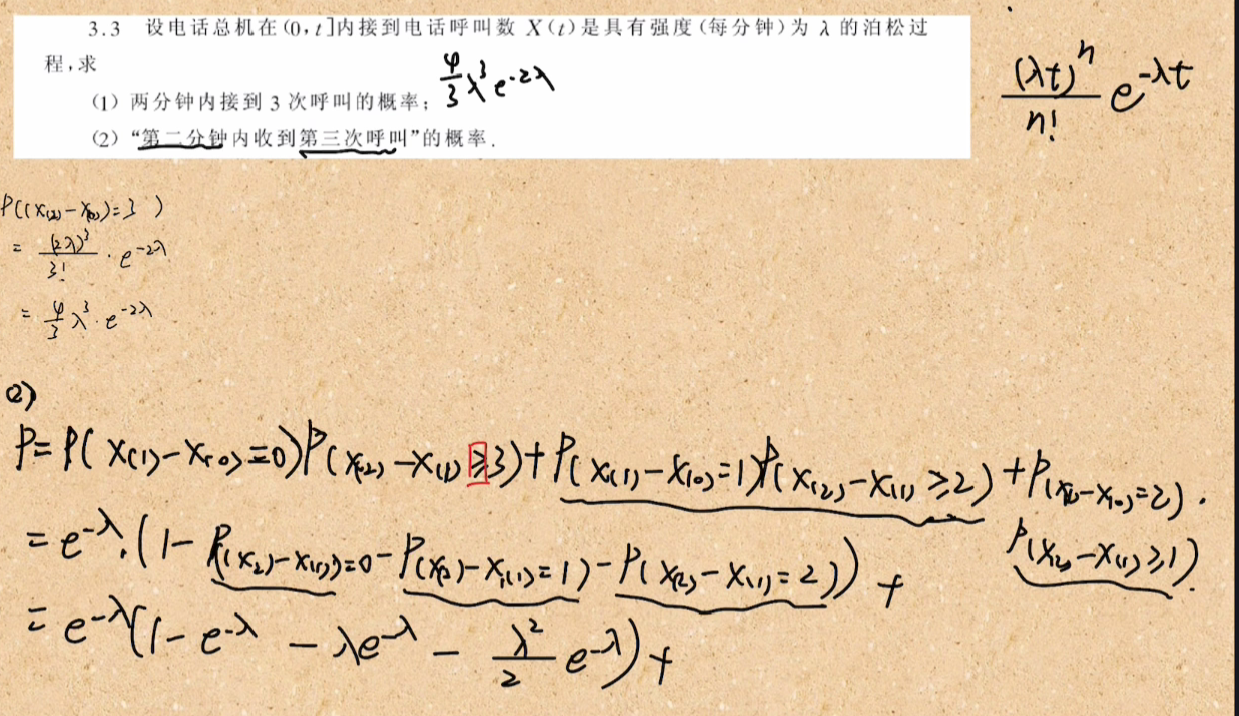 3.3 设电话总机在(0,t]内接到电话呼叫数 X(t)是具有强度(每分钟)为 λ 的泊松过
程,求
(1) 两分钟内接到 3 次呼叫的概率;
4/3 λ³ e^-2λ
(2) “第二分钟内收到第三次呼叫”的概率.
(λt)^n / n! e^-λt
P((X(2)-X(0))=3 )
= (2λ)³ / 3! · e^-2λ
= 4/3 λ³ · e^-2λ
(2)
P=P(X(1)-X(0)=0)P(X(2)-X(1)≥3)+P(X(1)-X(0)=1)P(X(2)-X(1)≥2)+P(X(1)-X(0)=2)·
P(X(2)-X(1)≥1)
=e^-λ·(1-P(X(2)-X(1))=0-P(X(2)-X(1)=1)-P(X(2)-X(1)=2))+
=e^-λ(1-e^-λ-λe^-λ-λ²/2 e^-λ)+